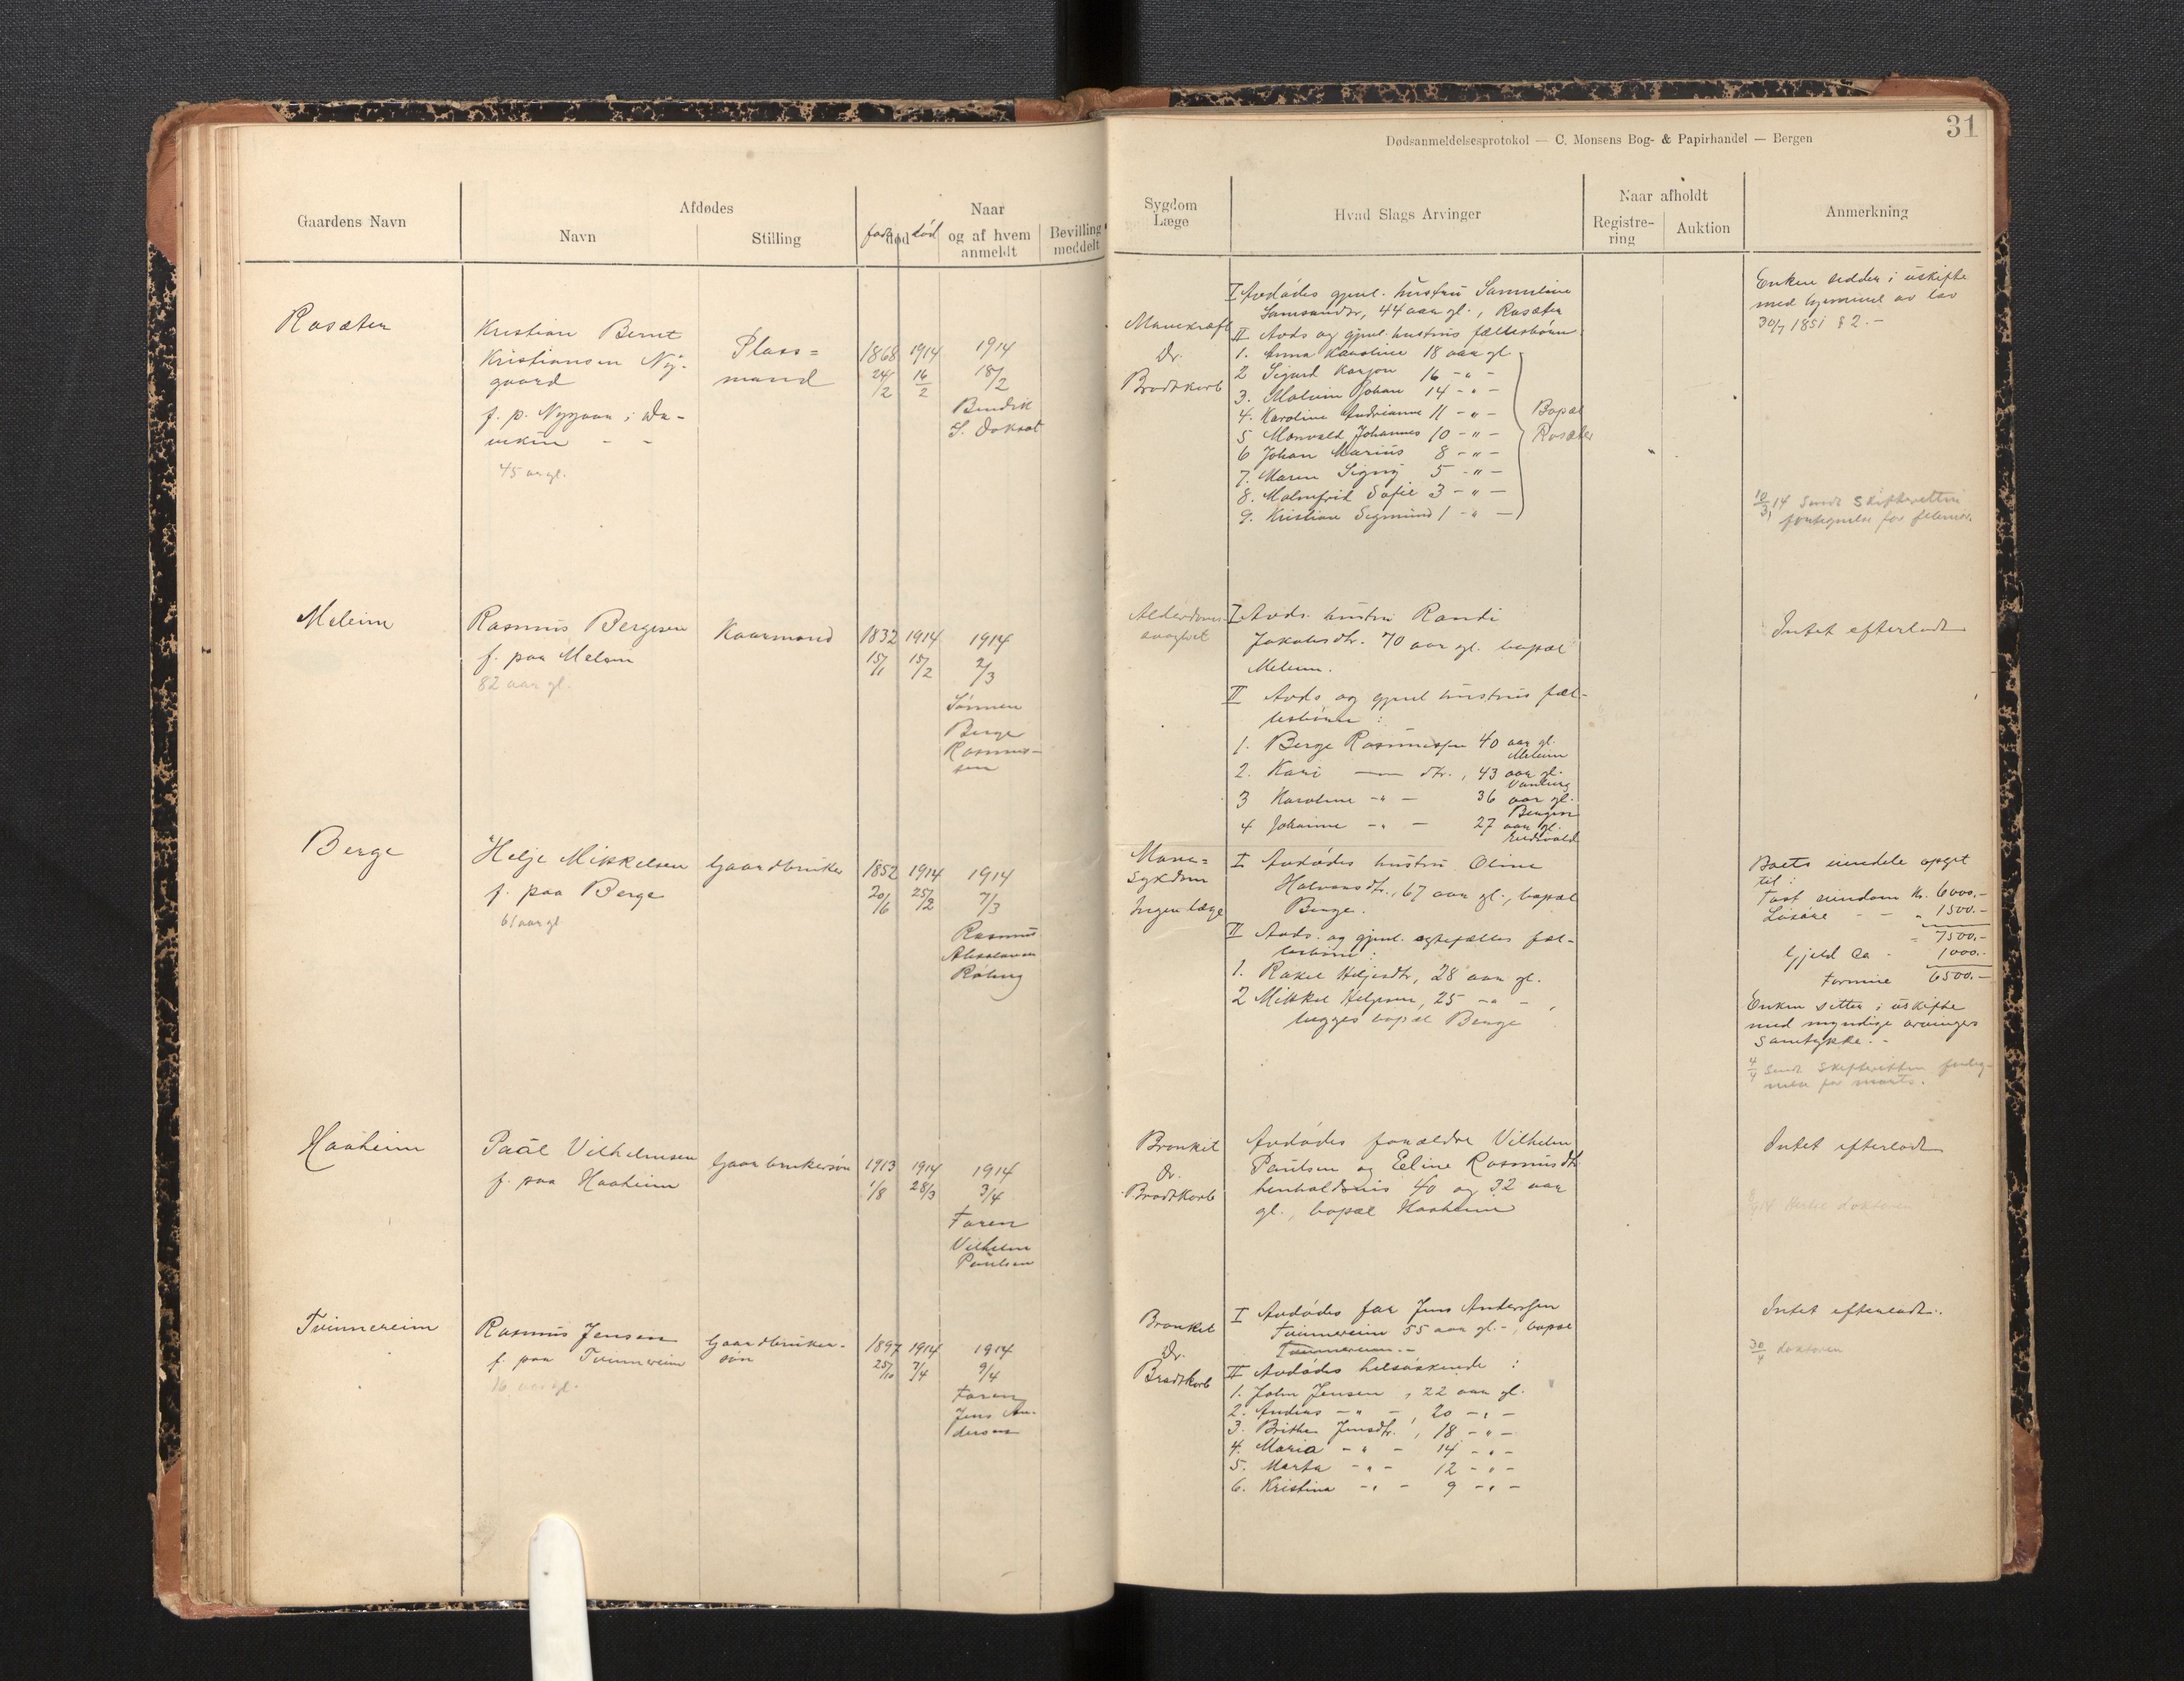 31
Dødsanmeldelsesprotokol — C. Monsens Bog- & Papirhandel — Bergen
Gaardens Navn
Afdødes
Navn
Stilling
død
født død
Naar
og af hvem
anmeldt
Bevilling
meddelt
Sygdom
Læge
Hvad Slags Arvinger
Naar afholdt
Registre-
ring
Auktion
Anmerkning
Rosæter
Kristian Bernt
Kristiansen Ny-
gaard
f. p. Nygaar i Da-
viken - -
45 aar gl.
Plass=
mand
1868
24/2
1914
16/2
1914
18/2
Bendik
S. Dokset
Mavekræft
Dr.
Bradtkorb
I Avdødes gjenl. hustru Samuline
44 aar gl., Rosæter
II Avds og gjenl. hustrus fællesbørn:
1. Anna Karoline 18 aar gl
2 Sigurd 16 - " -
3. Malvin Johan 14 - " -
4. Karoline Andrianne 11 - " -
5 Monvald Johannes 10 - " -
6 Johan Marius 8 - " -
7. Maren Signy 5 - " -
8. Malmfrid Sofie 3 - " -
9. Kristian Sigmund 1 - " -
Bopæl
Rosæter
Enken sidder i uskifte
med hjemmel av lov
30/7 1851 § 2. -
10/3 14 Sendt Skifteretten
fortegnelse for februar.
Meleim
Rasmus Bergesen
f. paa Meleim
82 aar gl.
Kaarmand
1832
15/1
1914
15/2
1914
2/3
Sønnen
Berge
Rasmus-
sen
Alderdoms-
svaghet
I Avds. hustru Randi
Jakobsdtr. 70 aar gl. bopæl
Meleim.
II Avds og gjenl hustrus fæl-
lesbørn :
1. Berge Rasmussen 40 aar gl.
Meleim
2. Kari — dtr., 43 aar gl.
3 Karoline - " - 36 aar gl.
Bergen
4 Johanne - " - 27 aar gl.
Eidsvold
Intet efterladt
Berge
Helje Mikkelsen
f. paa Berge
61 aar gl
Gaardbruker
1852
20/6
1914
25/2
1914
7/3
Rasmus
Absalonsen
Mave=
sykdom
Ingen læge
I Avdødes hustru Oline
Halvorsdtr., 67 aar gl., bopæl
Berge.
II Avds. og gjenl. egtefælles fæl-
lesbørn :
1. Rakel Heljesdtr, 28 aar gl.
2 Mikkel Heljesen, 25 - " -
begges bopæl Berge
Boets eiendele opgit
til :
Fast eiendom Kr. 6000.-
Løsøre - - " 1500.-
" 7500.-
Gjeld ca - 1000.-
Formue 6500.-
Enken sitter i uskifte
med myndige arvinges
samtykke. -
4/4 Sendt Skifteretten forteg-
nelse for marts.
Haaheim
Paal Vilhelmsen
f. paa Haaheim
Gaarbrukersøn
1913
1/8
1914
28/3
1914
3/4
Faren
Vilhelm
Paulsen
Bronkit
Dr.
Bradtkorb
Avdødes forældre Vilhelm
Paulsen og Eline Rasmusdtr
henholdsvis 40 og 32 aar
gl., bopæl Haaheim
Intet efterladt
doktoren
Tvinnereim
Rasmus Jensen
f. paa Tvinnereim
16 aar gl.
Gaardbruker-
søn
1897
25/10
1914
7/4
1914
9/4
Faren
Jens An-
dersen
Bronkit
Dr.
Bradtkorb
I Avdødes far Jens Anderssen
Tvinnereim 55 aar gl. -, bopæl
Tvinnereim. -
II Avdødes helsøskende :
1. John Jensen , 22 aar gl.
2. Anders - " - , 20 - " -
3. Brithe Jensdtr. , 18 - " -
4. Maria - " - 14 - " -
5. Marta - " - 12 - " -
6. Kristine - " - 9 - " -
Intet efterladt.
30/4 doktoren